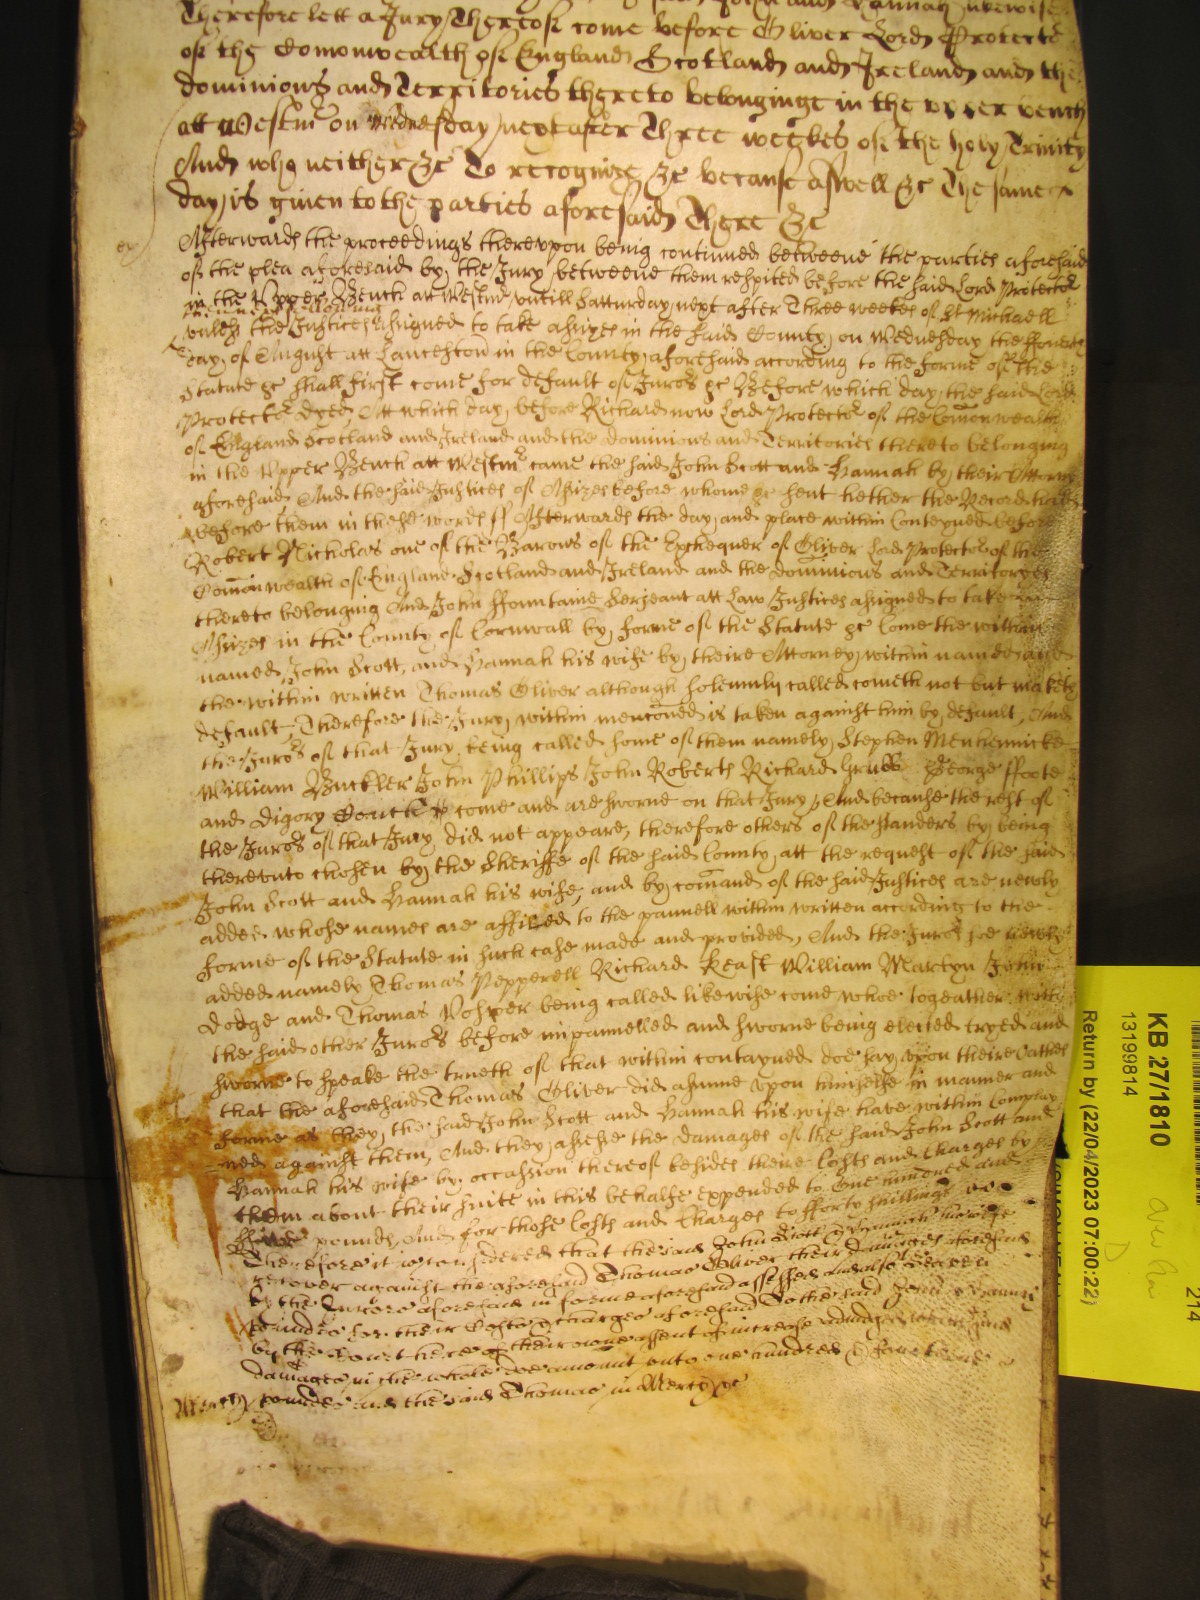 John and Hannah likewise
Therefore lett a Jury thereof come before Oliver Lord Protector
of the Comonwealth of England Scotland and Ireland and the
dominions and Territories thereto belonginge in the upper bench
att Westm on Wednesday next after Three weekes of the holy Trinity
And who neither &c To recognize &c because aswell &c The same
day is given to the parties aforesaid There &c
Afterwards the proceedings thereupon being continued betweene the parties aforesaid
of the plea aforesaid by the Jury betweene them respited before the said Lord Protector
in the Upper Bench att Westmr untill Satturday next after Three weekes of St Michaell
unles the Justices assigned to take assizes in the said County on Wednesday the
day of August att Lanceston in the County aforesaid according to the forme of the
Statute &c shall first come for default of Juror &c Before which day the said Lord
Protector dyed Att which day before Richard now Lord Protector of the Comonwealth
of England Scotland and Ireland and the dominions and Territories thereto belonging
in the Upper Bench att Westmr came the said John Scott and Hannah by their Attorney
aforesaid And the said Justices of Assizes before whome &c sent hether the Record had
before them in these words ss Afterwards the day and place within conteyned before
Robert Nicholas one of the Barons of the Exchequer of Oliver Lord Protector of the
Comonwealth of England Scotland and Ireland and the dominions and Territoryes
thereto belonging And John ffountaine Serjeant att Law Justices assigned to take
Assizes in the County of Cornwall by forme of the Statute &c Come the within
named John Scott and Hannah his wife by theire Attorney within named and
the within written Thomas Oliver although solemnly called cometh not but maketh
default, Therefore the Jury within menconed is taken against him by default, And
the Jurors of that Jury being called some of them namely Stephen
William Buckler John Phillips John Roberts Richard Grubb George ffoote
and Digory come and are sworne on that Jury And because the rest of
the Jurors of that Jury did not appeare, therefore others of the standers by being
thereunto chosen by the Sheriffe of the said County att the request of the said
John Scott and Hannah his wife, and by comand of the said Justices are newly
added whose names are affiled to the pannell within written according to the
forme of the Statute in such case made and provided, And the Jurors soe newly
added namely Thomas Pepperell Richard Keast William Martyn John
Dodge and Thomas being called likewise come whoe togeather with
the said other Jurors before impannelled and sworne being elected tryed and
sworne to speake the trueth of that within contayned doe say upon theire Oathes
that the aforesaid Thomas Oliver did assume upon himselfe in manner and
forme as they the said John Scott and Hannah his wife have within complay
ned against them, And they assesse the damages of the said John Scott and
Hannah his wife by occassion thereof besides theire Costs and Charges by
them about their suite in this behalfe expended to One hundred and
pounds, And for those Costs and Charges to fforty shillings
Therefore it is considered that the said John Scott & Hannah his wife
recover against the aforesaid Thomas Oliver their damages aforesaid
by the Jurors aforesaid in forme aforesaid assessed and also
pounds for their Costs & charges aforesaid to the said John & Hannah
by the Court here of their owne assent of increase adjudged
damages in the whole doe amount unto one hundred &
Mercy pounds and the said Thomas in Mercy &c
KB 27/1810
13199814
Return by (22/04/2023 07:00:22)
214